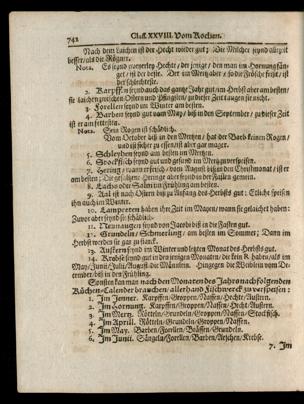 742 Claß. XXVIII. Vom Kochen.
Nach dem laichen ist der Hecht wieder gut; Die Milcher seynd allzeit
besser/als die Rögner.
Nota. Es seynd zweyerley Hechte/
ist der beste. Der im Mertz aber/ so die Frösche frist/ ist
der schlechteste.
2. Karpffen seynd auch das gantz Jahr gut/ im Herbst aber am besten/
sie laichen zwischen Ostern und Pfingsten/ zu dieser Zeit taugen sie nicht.
3. Forellen seynd im Winter am besten.
4. Barben seynd gut vom May/ biß in den September/ zu dieser Zeit
ist er am fettesten.
Nota. Sein Rogen ist schädlich.
Vom October biß in den Mertzen/ hat der Barb keinen Rogen/
und ist sicher zu essen/ist aber gar mager.
5. Schleyhen seynd am besten im Mertzen.
6. Stockfisch seynd gut und gesund im Mertz zu verspeisen.
7. Hering/ wann er frisch/ vom Augusti biß an den Christmonat/ ist er
am besten; Die gesaltzene Hering aber seynd in der Fasten gemein.
8. Lachs oder Salm im Frühling am besten.
9. Aal ist nach Ostern biß zu Anfang des Herbsts gut; Etliche speisen
ihn auch im Winter.
10. Lampreten haben ihre Zeit im Mayen/ wann sie gelaichet haben;
Zuvor aber seynd sie schädlich.
11. Neunaugen seynd von Jacobi biß in die Fasten gut.
12. Grundeln/ Schmerling/ am besten im Sommer; Dann im
Herbst werden sie gar zu starck.
13. Austern seynd im Winter und letzten Monat des Herbsts gut.
14. Krebse seynd gut in den jenigen Monaten/ die kein R haben/ als im
May/Junii/Julii/Augusti die Männlein. Hingegen die Weiblein vom De-
cember/biß in den Frühling.
Sonsten kan man nach den Monaten des Jahrs nachfolgenden
Küchen-Calender brauchen/ allerhand Fischwerck zu verspeisen:
1. Im Jenner. Karpffen/Groppen/Nassen/Hechte/Austern.
2. Im Hornung. Karpffen/Groppen/Nassen/Hecht/Austern.
3. Im Mertz. Rötteln/Grundeln/Groppen/Nassen/Stockfisch.
4. Im Aprill. Rötteln/Grundeln/Groppen/Nassen.
5. Im May. Barben/Forellen/Braßen/Grundeln.
6. Im Junii. Sängeln/Forellen/Barben/Aeschen/Krebse.
7. Im